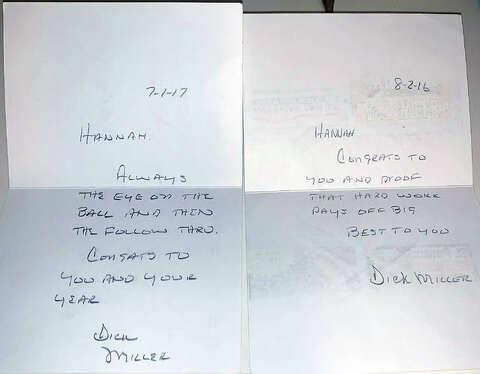 7-1-17
HANNAH.
ALWAYS
THE EYE ON THE
BALL AND THEN
THE FOLLOW THRU.
CONGATS TO
YOU AND YOUR
YEAR
DICK
MILLER
8-2-16
HANNAH
CONGRATS TO
YOU AND PROOF
THAT HARD WORK
PAYS OFF BIG
BEST TO YOU
DICK MILLER